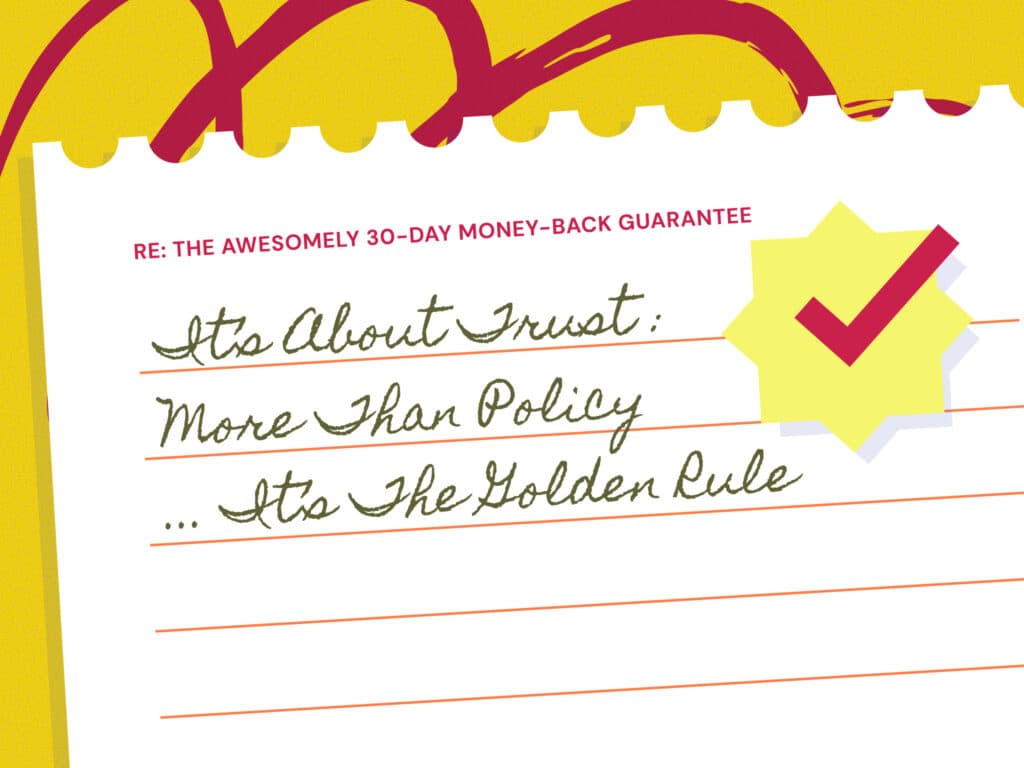 RE: THE AWESOMELY 30-DAY MONEY-BACK GUARANTEE
It's About Trust:
More Than Policy
... It's The Golden Rule